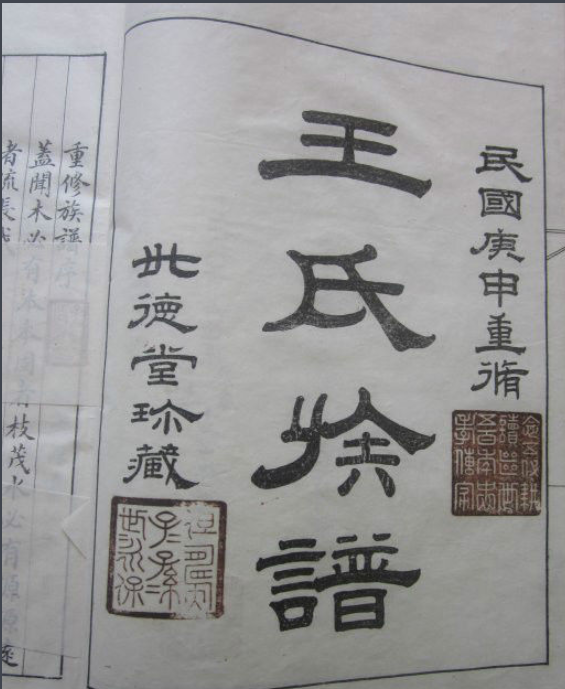 民國庚申重脩
王氏族譜
世德堂珍藏
重修族譜序
蓋聞木必有本本固者枝茂水必有源源遠
者流長